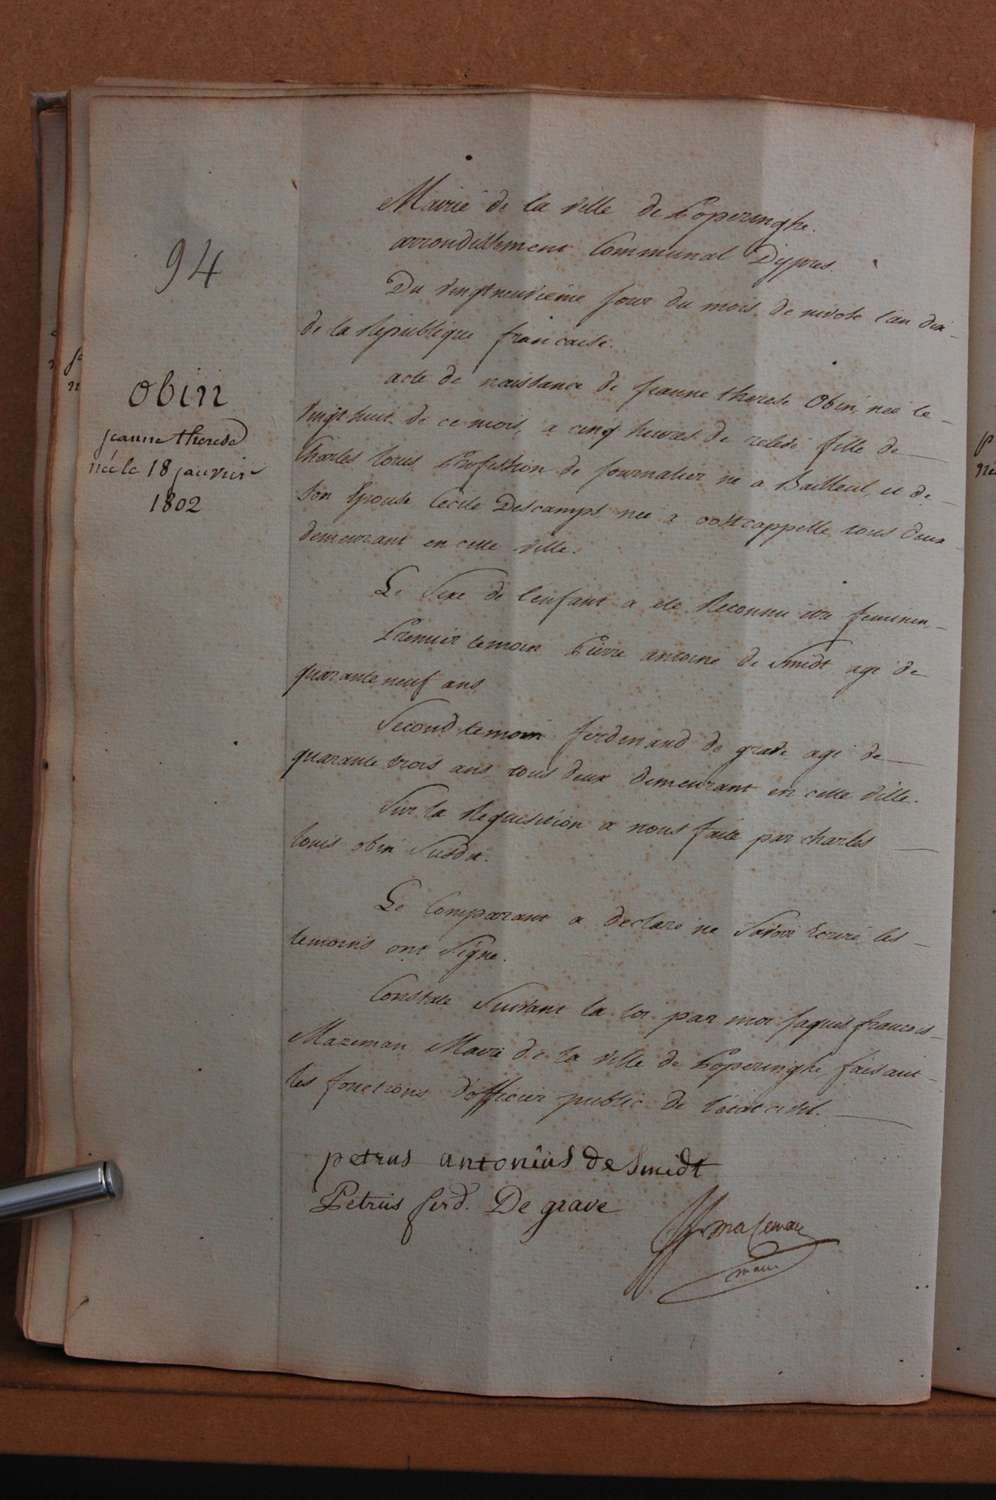 94
Obin
jeanne therese
née le 18 janvier
1802
Mairie de la ville de Poperinghe.
arrondissement Communal D'ypres
Du vingtneuvieme jour du mois de nivose l'an dix
de la Republique francaise.
acte de naissance de jeanne therese Obin, née le
vingt huit de ce mois, a cinq heures de relevé fille de
Charles louis Profession de journalier né a Bailleul, et de
Son Epouse Cecile Descamps née a oostcappelle tous deux
demeurant en cette ville.
Le Sexe de l'enfant a eté Reconnu etre feminin
Premier temoin Pierre antoine de Smidt agé de
quarante neuf ans
Second temoin ferdinand de grave agé de
quarante trois ans tous deux demeurant en cette ville.
Sur la Requisition a nous faite par charles
louis obin Susdit.
Le Comparant a declaré ne Savoir Ecrire les
temoins ont Signe.
Constaté Suivant la loi par moi jaques francois
Mazeman Maire de la ville de Poperinghe faisant
les fonctions d'officier public de l'etat civil.
petrus antonius de Smidt
Petrus ferd. De grave
mazeman
maire